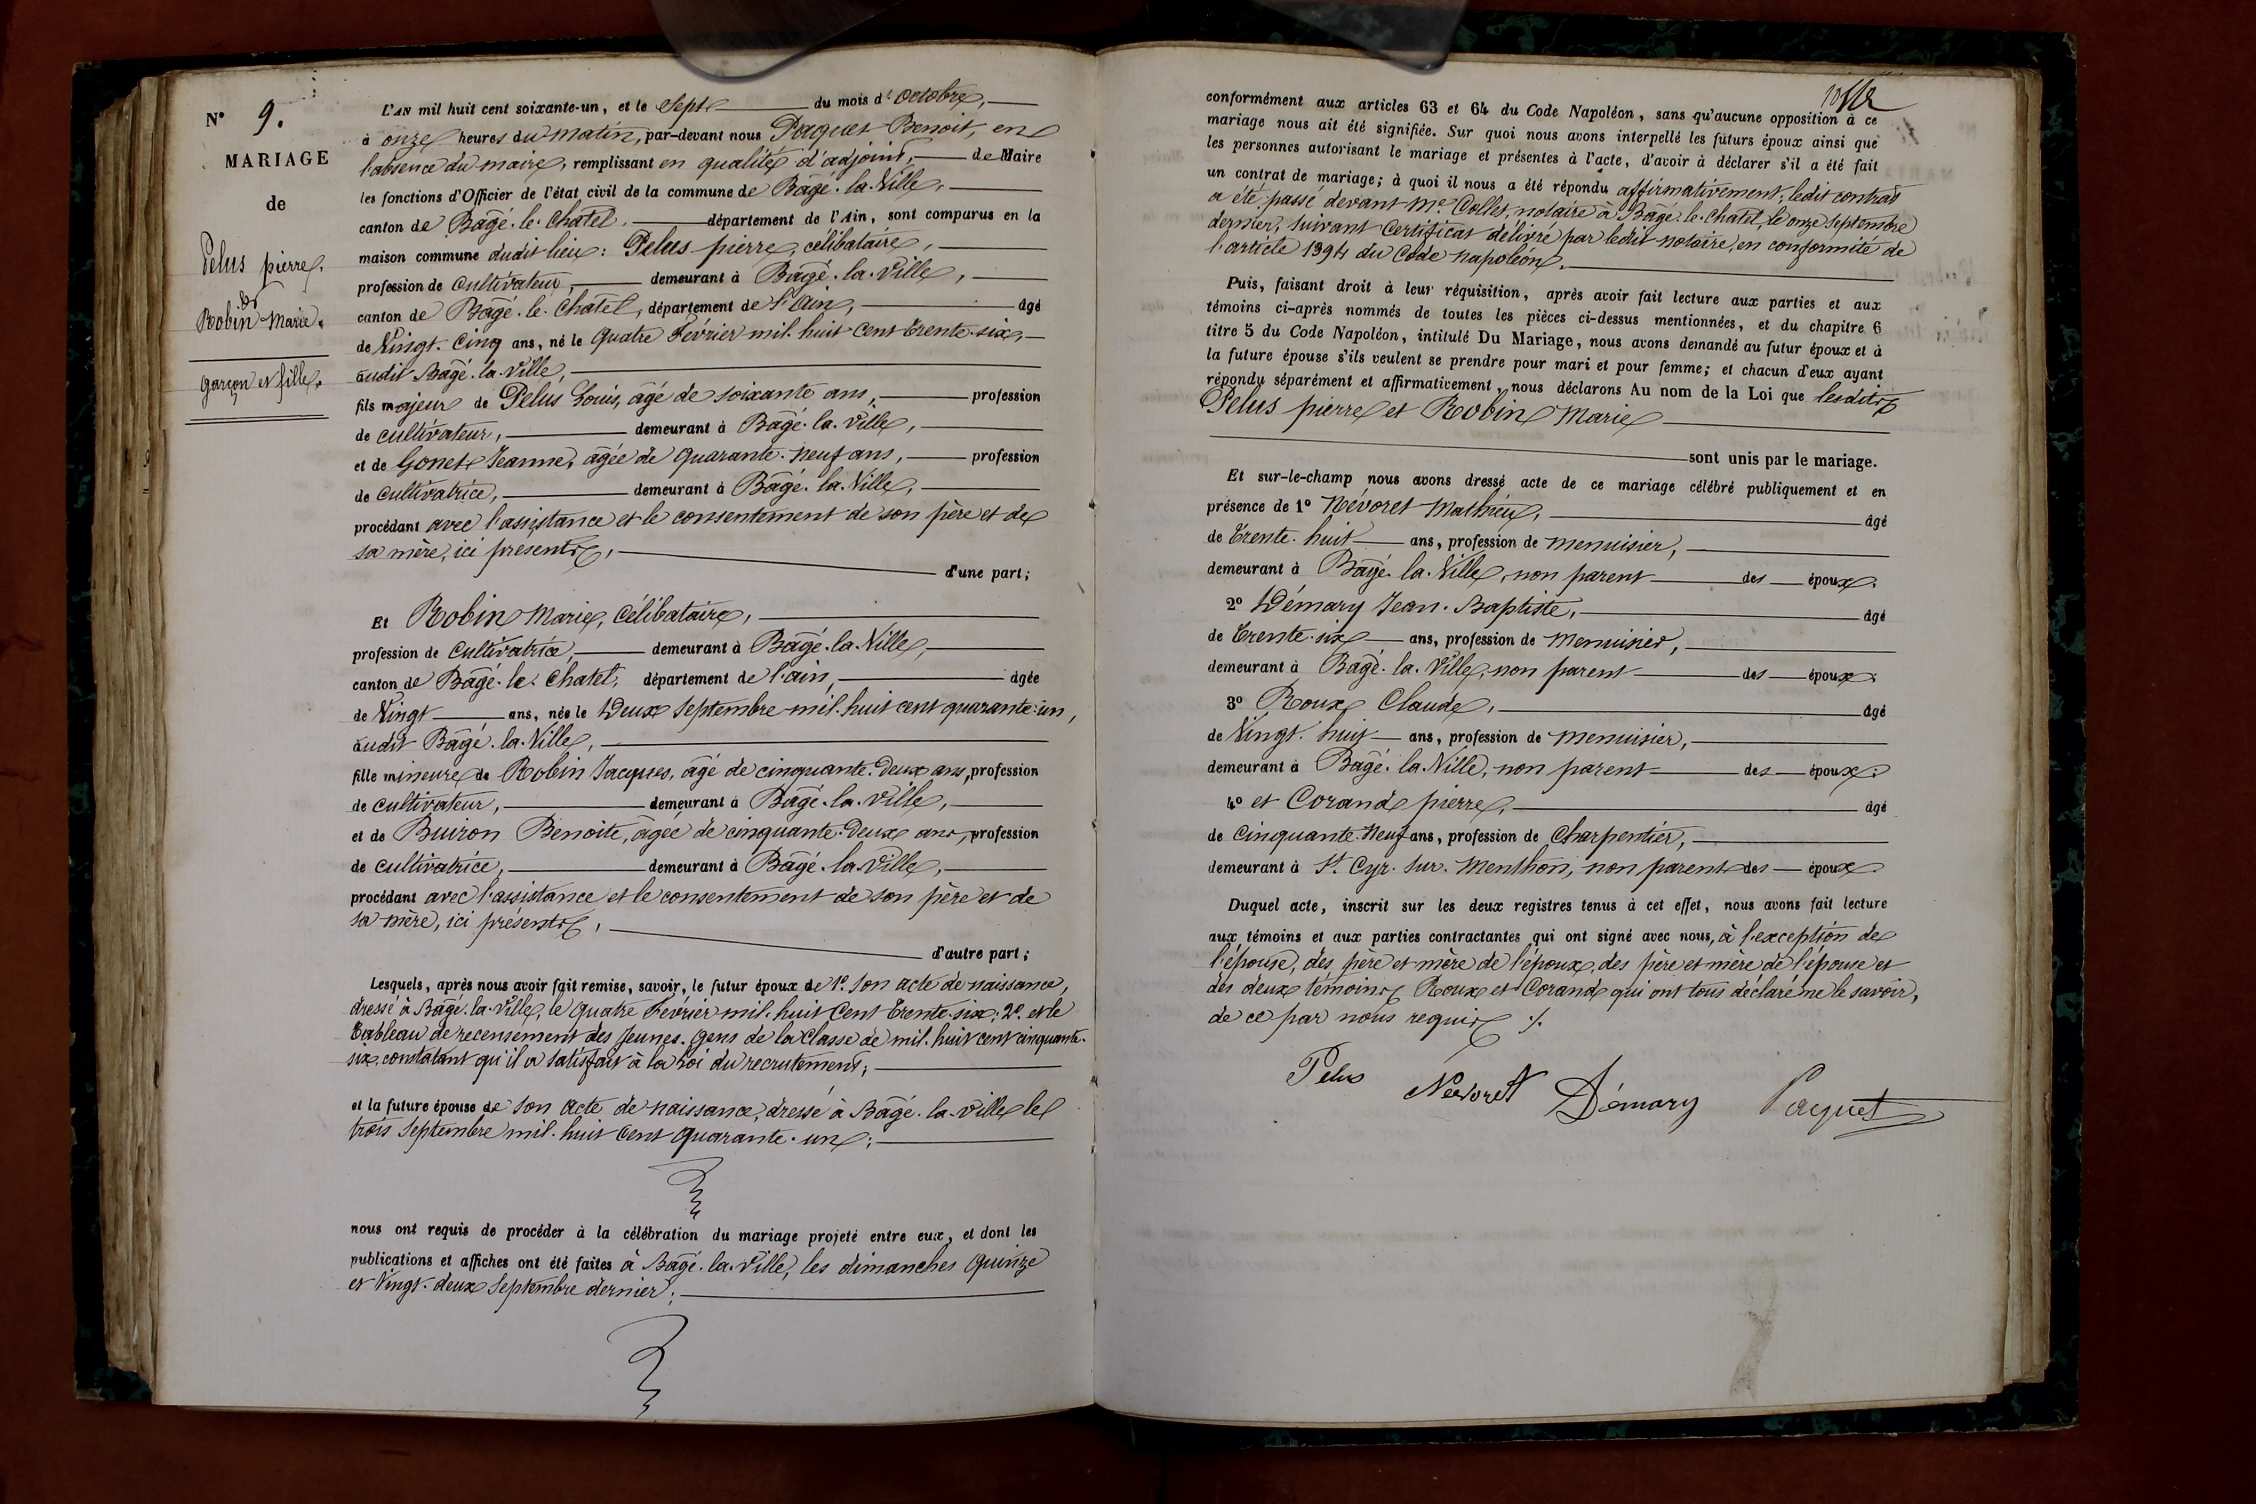 N° 9.
MARIAGE
de
Pelus pierre,
&
Robin Marie.
garçon et fille.
L'AN mil huit cent soixante-un, et le Sept du mois d'octobre,
à onze heures du matin, par-devant nous Paquet Benoit, en
l'absence du maire, remplissant en qualité d'adjoint, de Maire
les fonctions d'Officier de l'état civil de la commune de Bâgé-la-Ville,
canton de Bâgé-le-Chatel, département de l'Ain, sont comparus en la
maison commune dudit lieu: Pelus pierre, célibataire,
profession de cultivateur, demeurant à Bâgé-la-Ville,
canton de Bâgé-le-Chatel, département de l'ain, âgé
de Vingt-Cinq ans, né le quatre Février mil-huit-cent trente-six,
audit Bâgé-la-Ville,
fils majeur de Pelus Louis, âgé de soixante ans, profession
de cultivateur, demeurant à Bâgé-la-Ville,
et de Gonet Jeanne, âgée de quarante-neuf ans, profession
de cultivatrice, demeurant à Bâgé-la-Ville,
procédant avec l'assistance et le consentement de son père et de
sa mère, ici présents,
d'une part;
Et Robin Marie, Célibataire,
profession de cultivatrice, demeurant à Bâgé-la-Ville,
canton de Bâgé-le-Chatel, département de l'ain, âgée
de Vingt ans, née le Deux septembre mil-huit cent quarante-un,
audit Bâgé-la-Ville,
fille mineure de Robin Jacques, âgé de cinquante-Deux ans, profession
de cultivateur, demeurant à Bâgé-la-Ville,
et de Buiron Benoite, âgée de cinquante-Deux ans, profession
de cultivatrice, demeurant à Bâgé-la-Ville,
procédant avec l'assistance et le consentement de son père et de
sa mère, ici présents,
d'autre part;
Lesquels, après nous avoir fait remise, savoir, le futur époux de 1° son acte de naissance,
dressé à Bâgé-la-Ville, le quatre Février mil-huit Cent trente-six; 2° et le
Tableau de recensement des Jeunes-gens de la Classe de mil-huit cent cinquante-
six, constatant qu'il a satisfait à la Loi du recrutement;
et la future épouse de son acte de naissance, dressé à Bâgé-la-Ville le
trois septembre mil-huit Cent quarante-un;
nous ont requis de procéder à la célébration du mariage projeté entre eux, et dont les
publications et affiches ont été faites à Bâgé-la-Ville, les dimanches quinze
et Vingt-deux septembre dernier;
conformément aux articles 63 et 64 du Code Napoléon, sans qu'aucune opposition à ce
mariage nous ait été signifiée. Sur quoi nous avons interpellé les futurs époux ainsi que
les personnes autorisant le mariage et présentes à l'acte, d'avoir à déclarer s'il a été fait
un contrat de mariage; à quoi il nous a été répondu affirmativement, ledit contrat
a été passé devant Me. Collet, notaire à Bâgé-le-Chatel, le onze septembre
dernier, suivant Certificat délivré par ledit notaire, en conformité de
l'article 1394 du Code napoléon.
Puis, faisant droit à leur réquisition, après avoir fait lecture aux parties et aux
témoins ci-après nommés de toutes les pièces ci-dessus mentionnées, et du chapitre 6
titre 5 du Code Napoléon, intitulé Du Mariage, nous avons demandé au futur époux et à
la future épouse s'ils veulent se prendre pour mari et pour femme; et chacun d'eux ayant
répondu séparément et affirmativement, nous déclarons Au nom de la Loi que lesdits
Pelus pierre et Robin Marie
sont unis par le mariage.
Et sur-le-champ nous avons dressé acte de ce mariage célébré publiquement et en
présence de 1° Névoret Mathieu, âgé
de trente-huit ans, profession de menuisier,
demeurant à Bâgé-la-Ville, non parent des époux.
2° Démary Jean-Baptiste, âgé
de trente-six ans, profession de menuisier,
demeurant à Bâgé-la-Ville, non parent des époux.
3° Roux Claude, âgé
de Vingt-huit ans, profession de menuisier,
demeurant à Bâgé-la-Ville, non parent des époux.
4° et Corand pierre, âgé
de cinquante-neuf ans, profession de Charpentier,
demeurant à St. Cyr-sur-Menthon, non parent des époux.
Duquel acte, inscrit sur les deux registres tenus à cet effet, nous avons fait lecture
aux témoins et aux parties contractantes qui ont signé avec nous, à l'exception de
l'épouse, des père et mère de l'époux, des père et mère de l'épouse et
des deux témoins Roux et Corand qui ont tous déclaré ne le savoir,
de ce par nous requis ./.
Pelus Névoret Démary Paquet